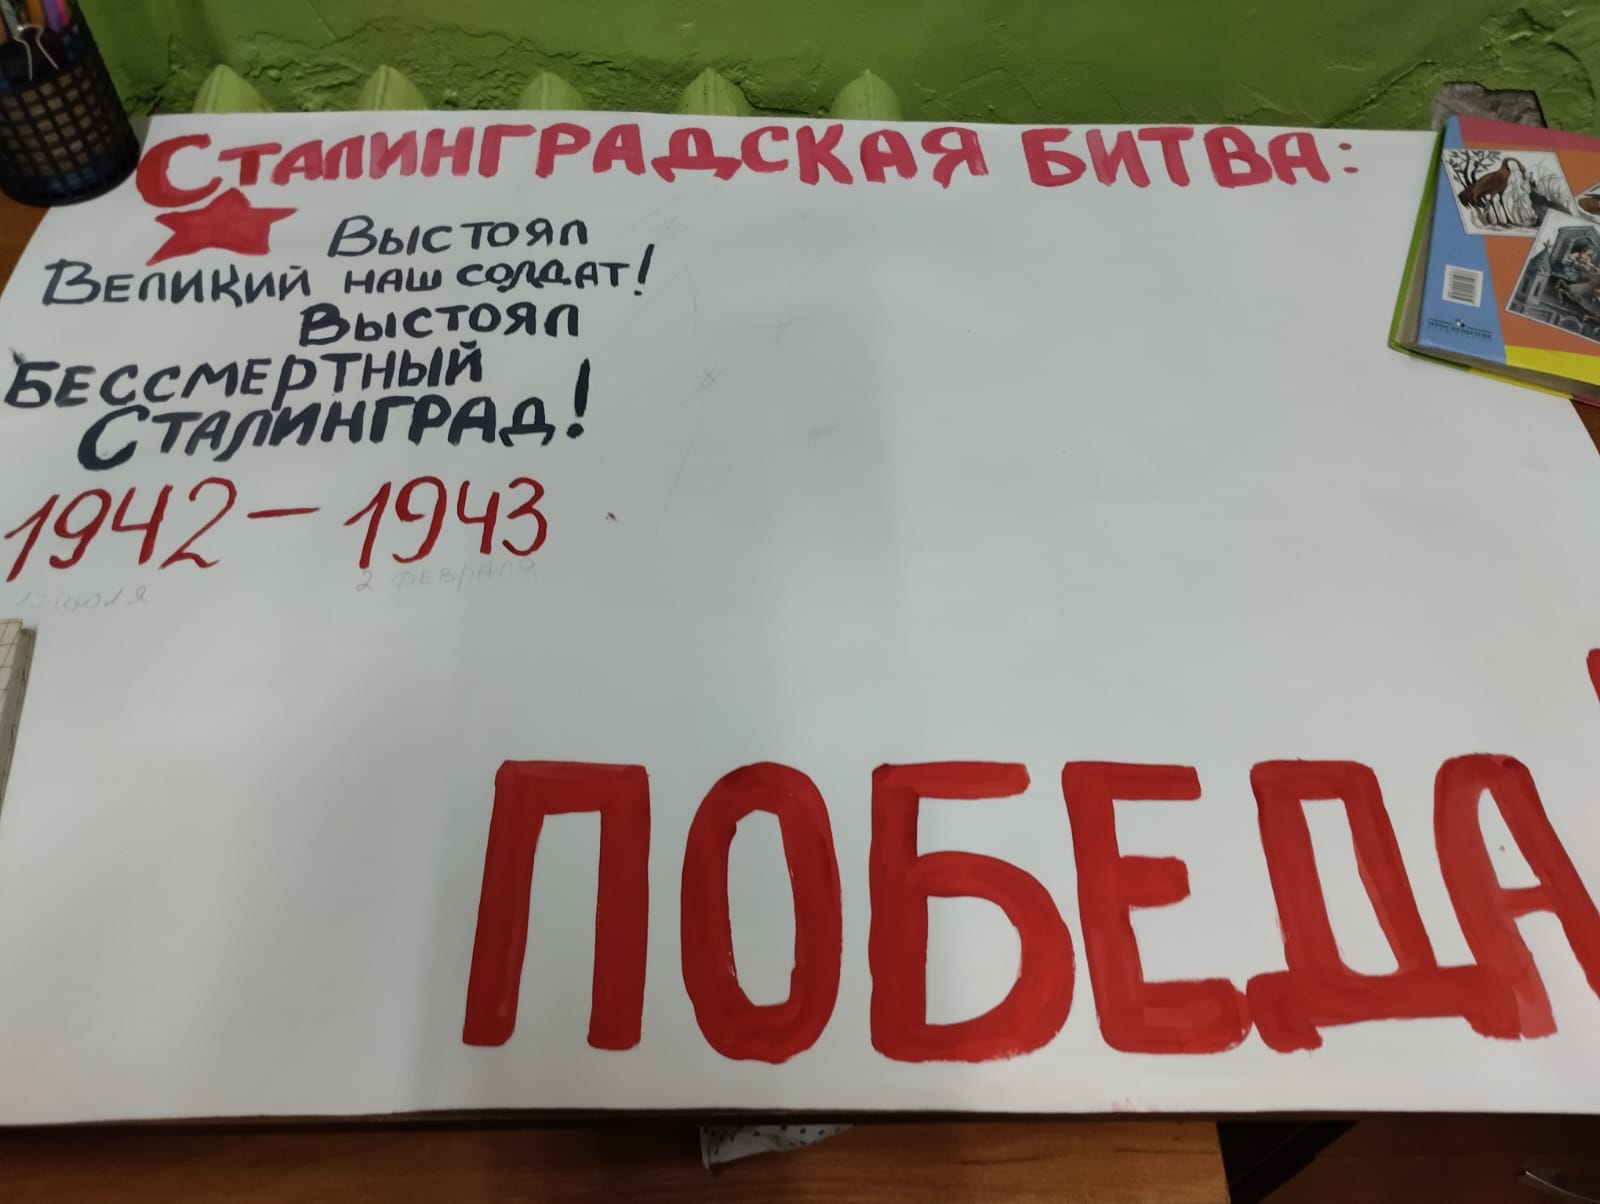 Сталинградская битва:
Выстоял
Великий наш солдат!
Выстоял
Бессмертный
Сталинград!
1942 – 1943
17 июля 2 февраля
ПОБЕДА
ПРОСВЕЩЕНИЕ